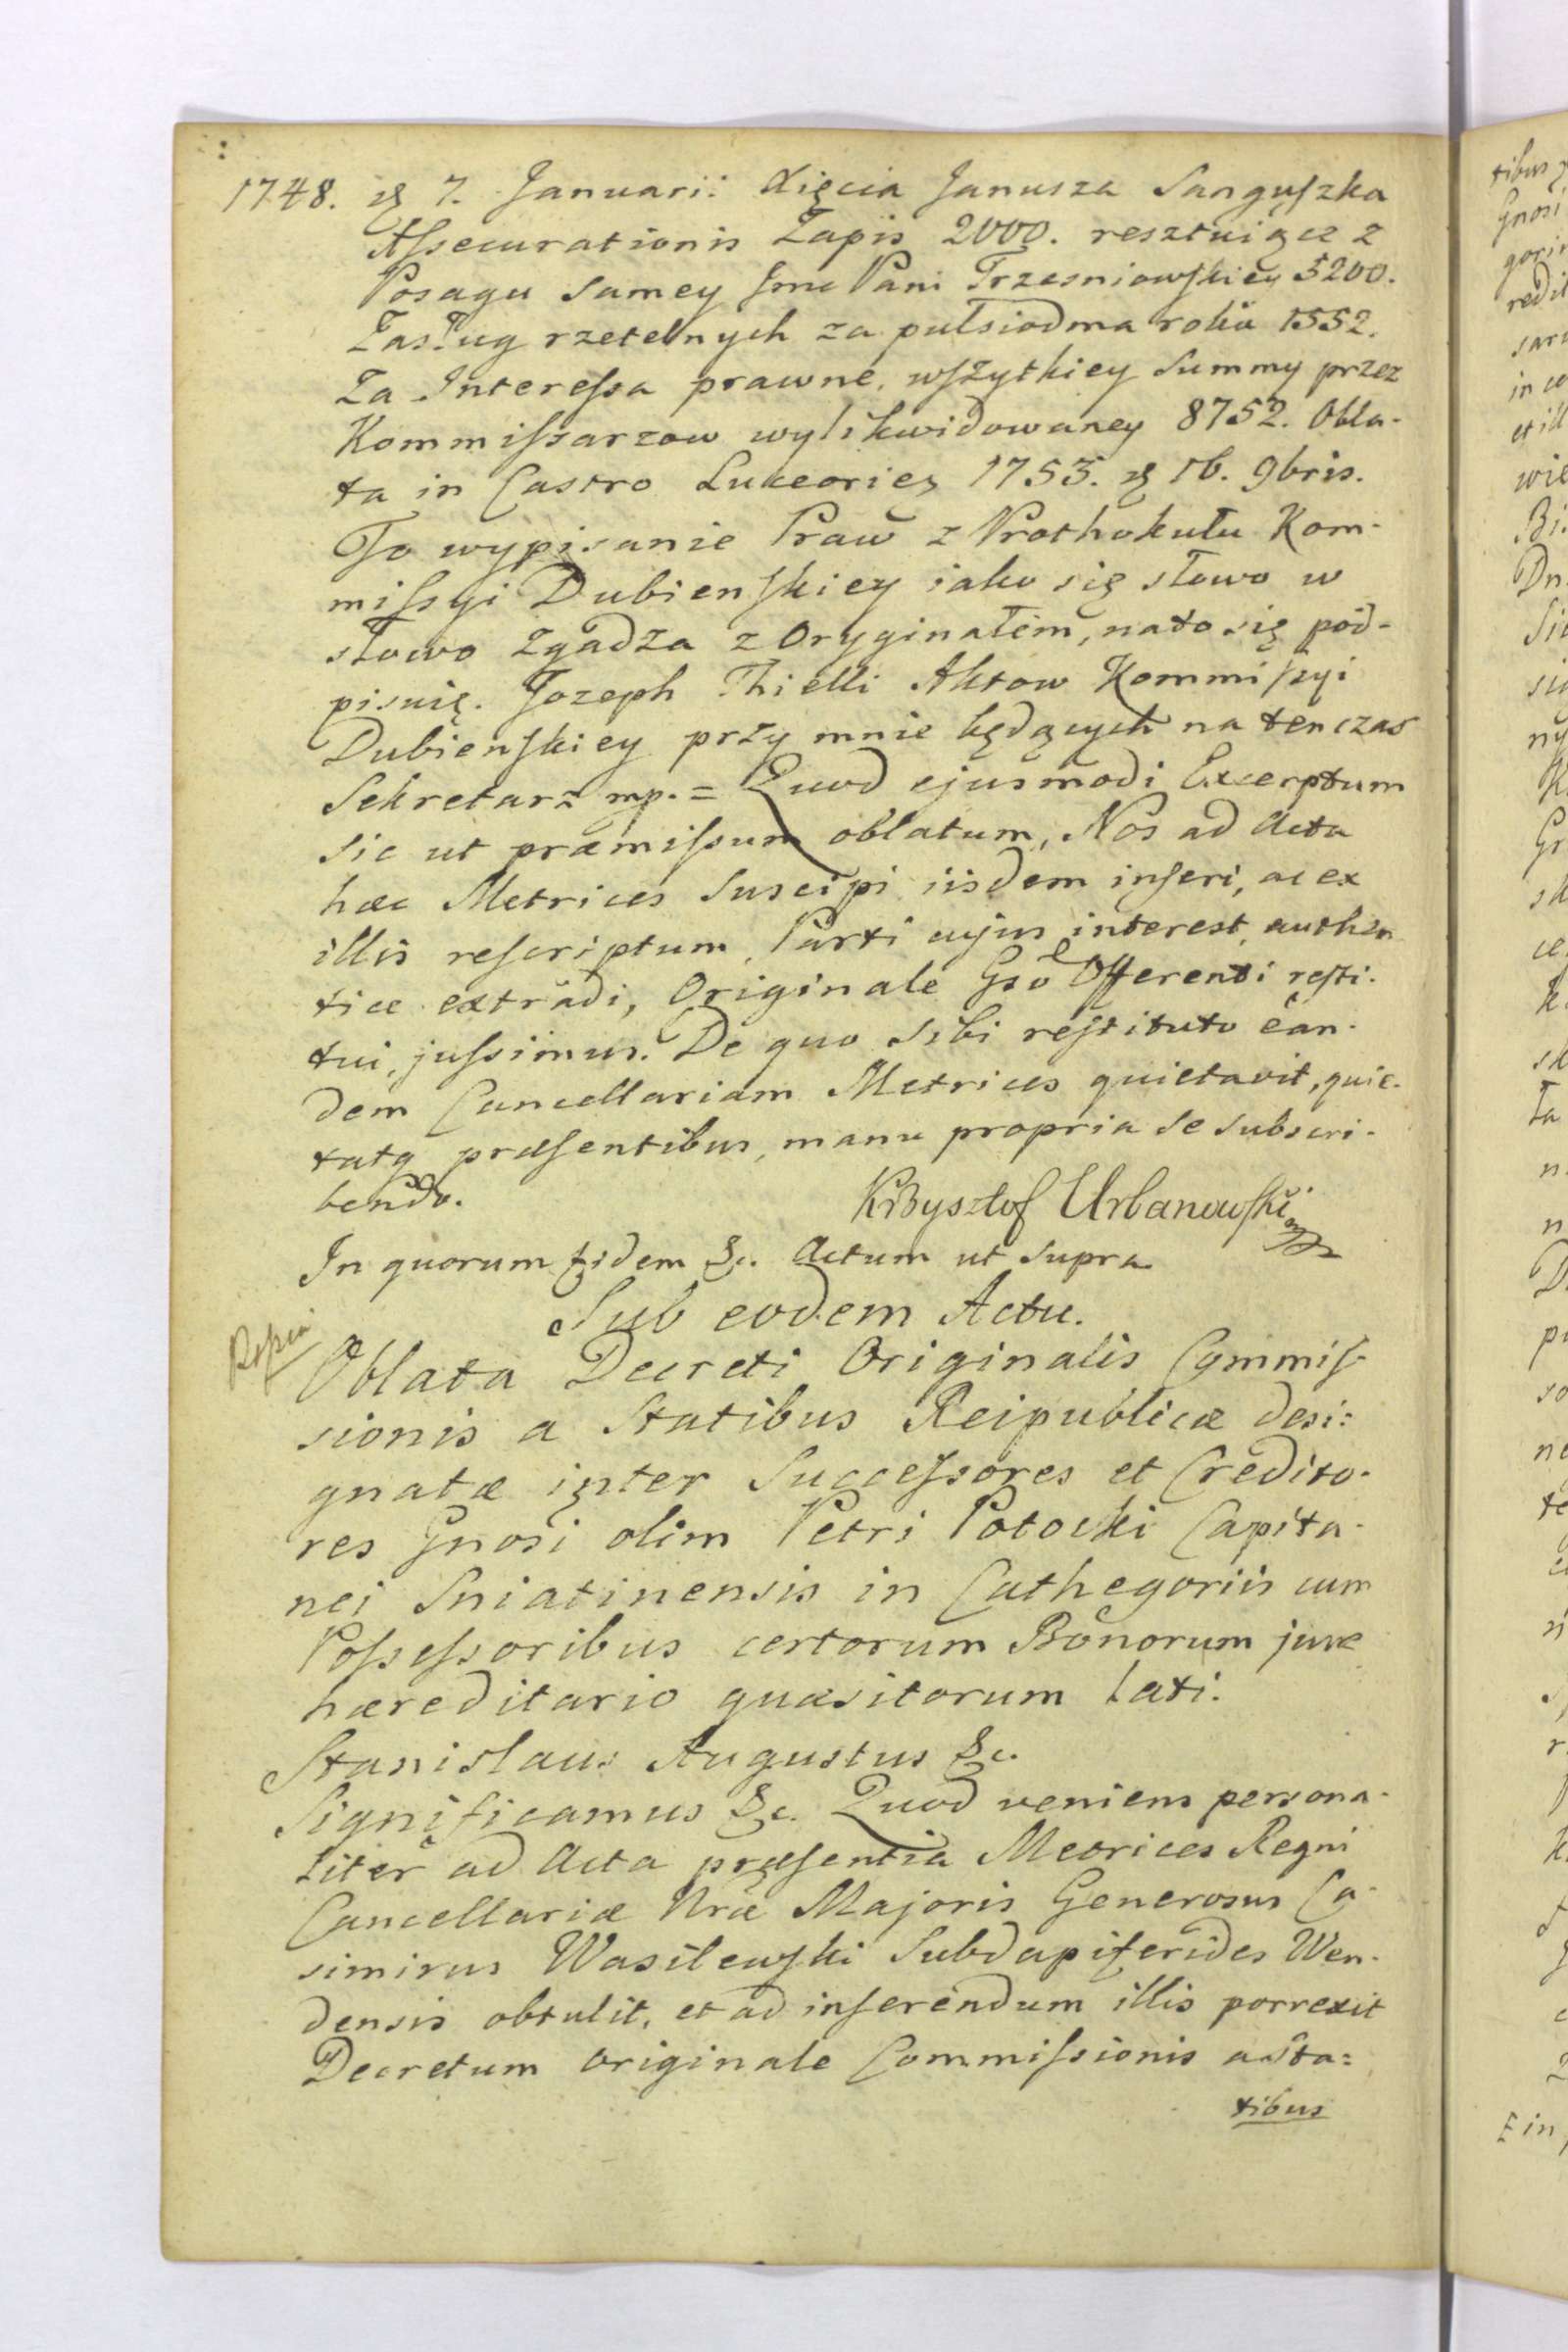 1748. d 7. Januarii Xięcia Janusza Sanguszka
Assecurationis Zapis 2000. resztuiące z
Posagu samey Jmc Pani Trzesniowskiey 5200.
Zasług rzetelnych za pułsiodma roku 1552.
Za Interessa prawne, wszytkiey Summy przez
Kommissarzow wylikwidowaney 8752. Obla-
ta in Castro Luceorien 1753. d 16. 9bris.
To wypisanie Praw z Prothokułu Kom-
missyi Dubienskiey iako się słowo w
słowo zgadza z Oryginałem, nato się pod-
pisuię. Jozeph Thielli Aktow Kommissyi
Dubienskiey przy mnie będących na tenczas
Sekretarz mp. = Quod ejusmodi Excerptum
sic ut præmissum oblatum, Nos ad Acta
hæc Metrices suscipi iisdem inseri, ac ex
illis rescriptum, Parti cujus interest, authen
tice extradi, Originale Gso Offerenti resti-
tui, jussimus. De quo sibi restituto ean-
dem Cancellariam Metrices quietavit, quie-
tatq præsentibus, manu propria se subscri-
bendo. Krzysztof Urbanowski mp
In quorum fidem &c. Actum ut supra
Sub eodem Actu.
Oblata Decreti Originalis Commis-
sionis a Statibus Reipublicæ desi:
gnatæ inter Successores et Credito-
res Gnosi olim Petri Potocki Capita-
nei Sniatinensis in Cathegoriis cum
Possessoribus certorum Bonorum jure
hæreditario quæsitorum lati.
Stanislaus Augustus &c.
Significamus &c. Quod veniens persona-
liter ad Acta præsentia Metrices Regni
Cancellariæ Nræ Majoris Generosus Ca-
simirus Wasilewski Subdapiferides Wen-
densis obtulit, et ad inserendum illis porrexit
Decretum originale Commissionis a Sta=
tibus